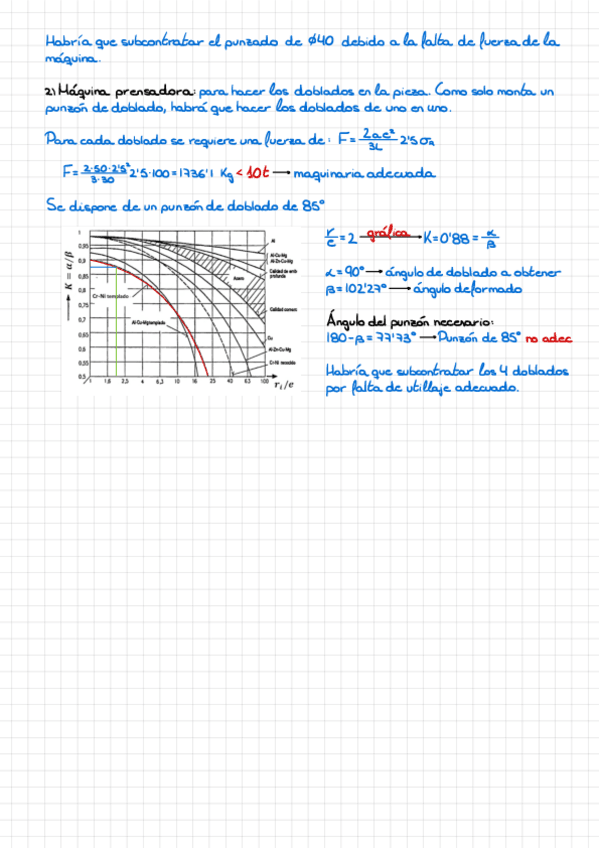 Habría que subcontratar el punzado de ø40 debido a la falta de fuerza de la
máquina.
2) Máquina prensadora: para hacer los doblados en la pieza. Como solo monta un
punzón de doblado, habrá que hacer los doblados de uno en uno.
Para cada doblado se requiere una fuerza de: F = 2ae²/3L 2'5 σR
F = 2·50·2'5²/3·30 2'5·100 = 1736'1 Kg < 10t → maquinaria adecuada
Se dispone de un punzón de doblado de 85°
r/e = 2 gráfica → K = 0'88 = α/β
α = 90° → ángulo de doblado a obtener
β = 102'27° → ángulo deformado
Ángulo del punzón necesario:
180 - β = 77'73° → Punzón de 85° no adec
Habría que subcontratar los 4 doblados
por falta de utillaje adecuado.
K = α/β
1
0,95
0,9
0,85
0,8
0,75
0,7
0,65
0,6
0,55
0,5
Cr-Ni templado
Al-Cu-Mg templado
Acero
Al
Al-Cu-Mg
Al-Zn-Cu-Mg
Calidad de emb
profunda
Calidad comerc
Cu
Al-Zn-Cu-Mg
Cr-Ni recocido
1 1,6 2,5 4 6,3 10 16 25 40 63 100 ri/e